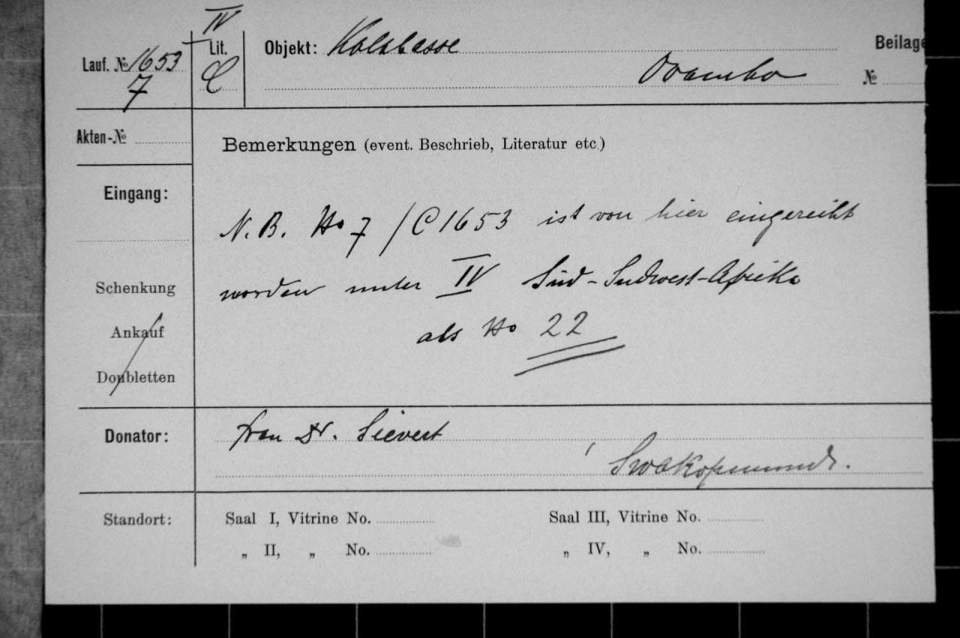 IV
Lauf. № 1653 Lit. Objekt: Kalabasse Beilage
7 C Ovambo №
Akten-№ Bemerkungen (event. Beschrieb, Literatur etc.)
Eingang:
N.B. No 7 / C 1653 ist von hier eingereiht
Schenkung worden unter IV Süd-Südwest-Afrika
Ankauf als No 22
Doubletten
Donator: Frau Dr. Sievert
Swakopmund.
Standort: Saal I, Vitrine No. Saal III, Vitrine No.
„ II, „ No. „ IV, „ No.